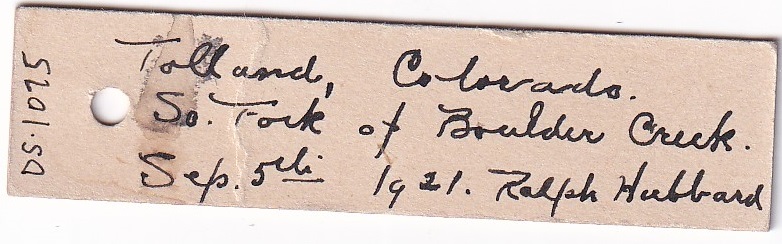 DS·1075
Tolland, Colorado.
So. Fork of Boulder Creek.
Sep. 5th 1921. Ralph Hubbard